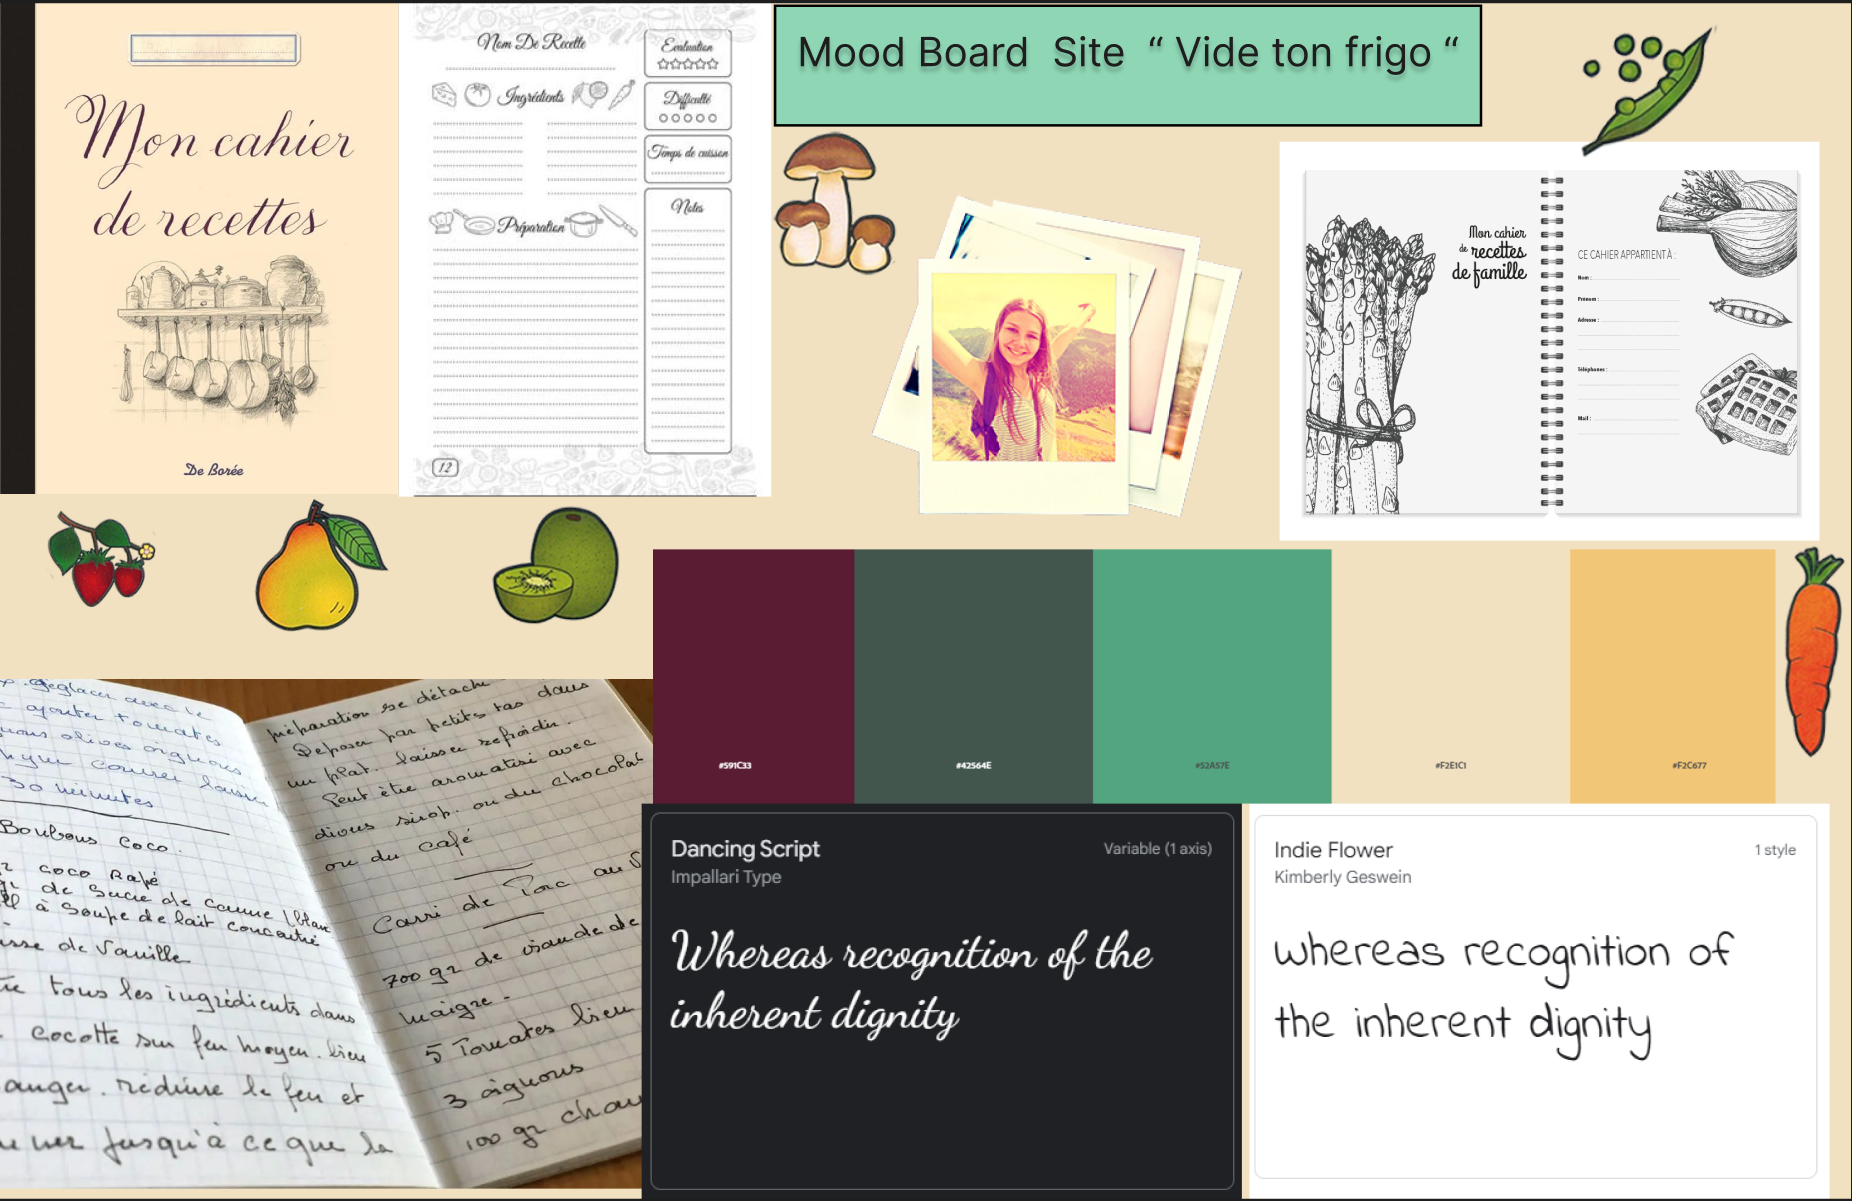 Mon cahier
de recettes
De Borée
Nom De Recette
Ingrédients
Préparation
12
Evaluation
Difficulté
Temps de cuisson
Notes
Mood Board Site “ Vide ton frigo “
Mon cahier
de recettes
de famille
CE CAHIER APPARTIENT À :
Nom :
Prénom :
Adresse :
Téléphones :
Mail :
#591C33
#42564E
#52A57E
#F2E1C1
#F2C677
déglacer avec le
ajouter tomates
olives oignons
couvrir laisser
30 minutes
Bonbons Coco.
coco Rapé
de Sucre de canne (blanc
à Soupe de lait concentré
de Vanille
tous les ingrédients dans
cocotte sur feu moyen. bien
réduire le feu et
jusqu'à ce que la
préparation se détache
Déposer par petits tas dans
un plat. laisser refroidir.
Peut être aromatisé avec
divers sirop. ou du chocolat
ou du café
Carri de Porc au
700 gr de viande de
maigre.
5 Tomates bien
3 oignons
100 gr
Dancing Script
Variable (1 axis)
Impallari Type
Whereas recognition of the
inherent dignity
Indie Flower
1 style
Kimberly Geswein
Whereas recognition of
the inherent dignity